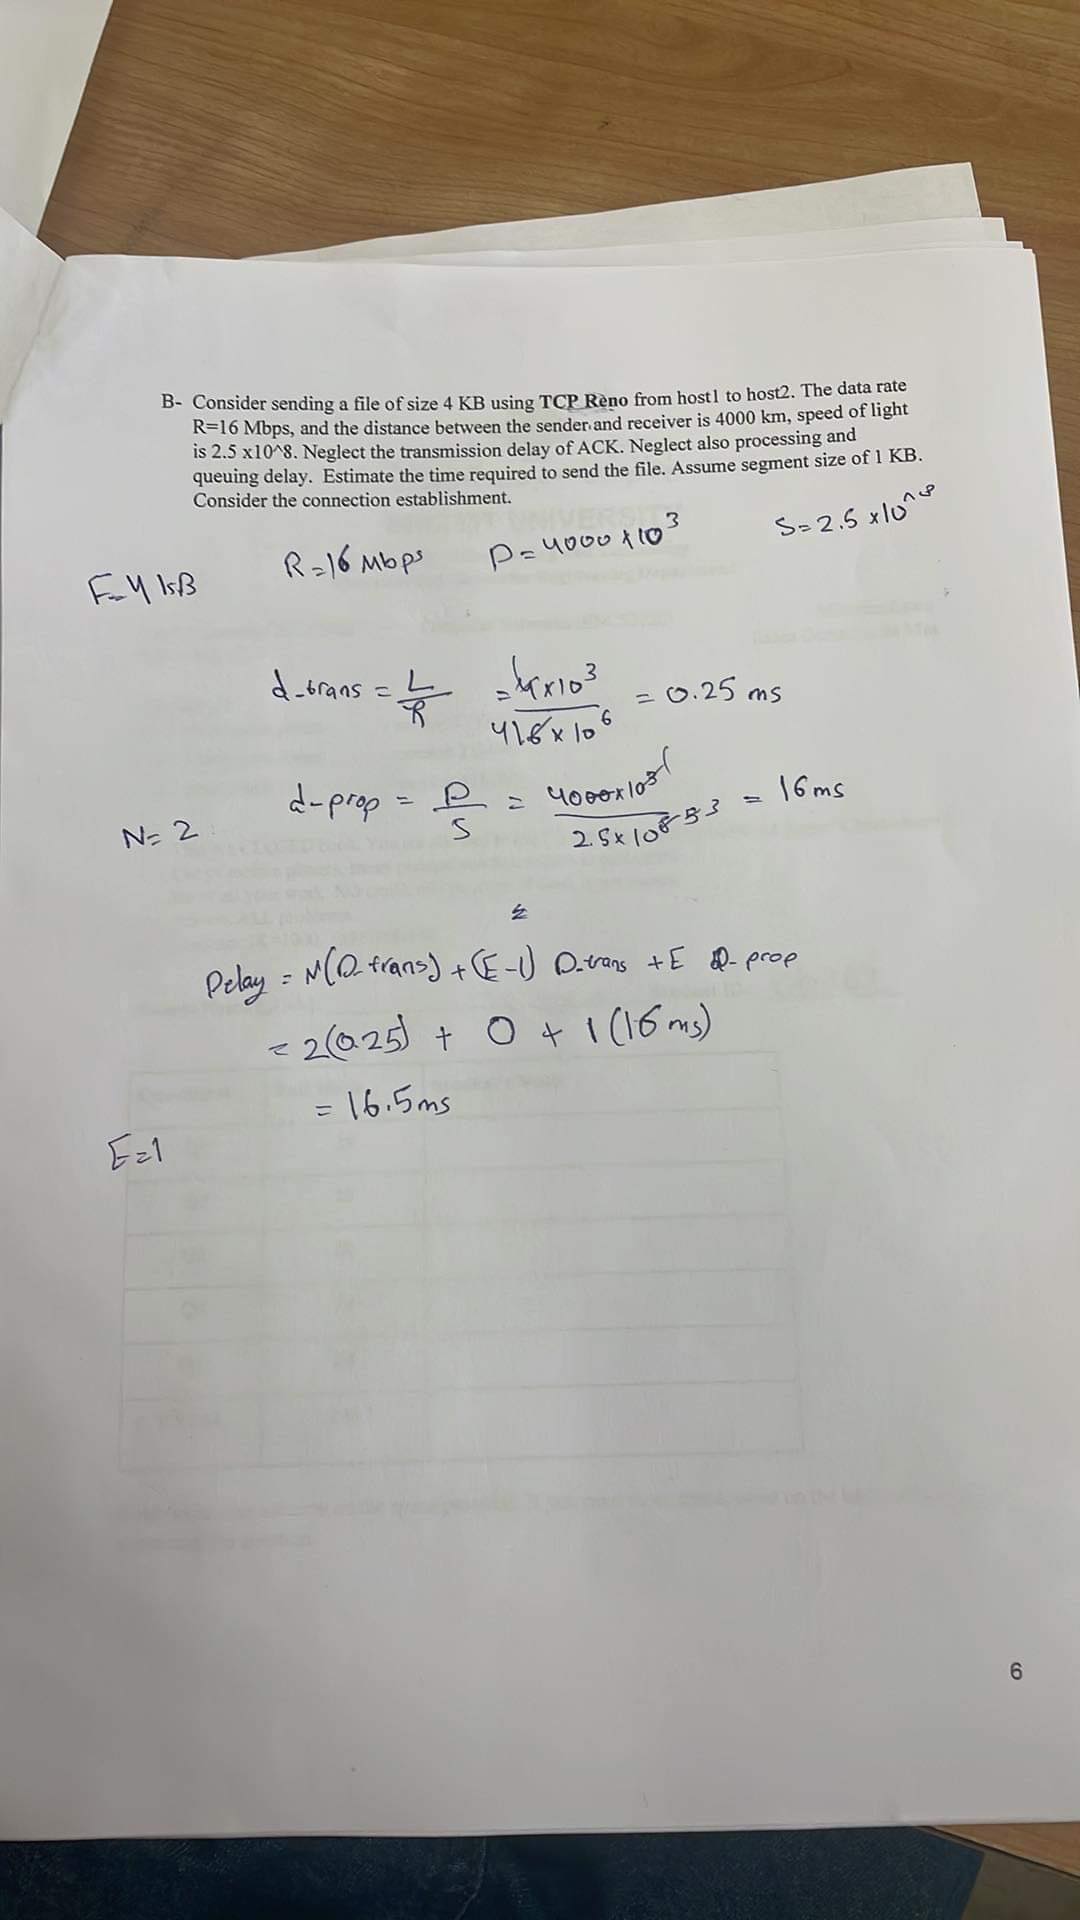 B- Consider sending a file of size 4 KB using TCP Reno from host1 to host2. The data rate
R=16 Mbps, and the distance between the sender and receiver is 4000 km, speed of light
is 2.5 x10^8. Neglect the transmission delay of ACK. Neglect also processing and
queuing delay. Estimate the time required to send the file. Assume segment size of 1 KB.
Consider the connection establishment.
F=4 KB R=16 Mbps D=4000 x10^3 S=2.5 x10^8
d-trans = L/R = 4x10^3/416x10^6 = 0.25 ms
N=2 d-prop = D/S = 4000x10^3/2.5x10^8 = 16ms
Delay = N(D-trans) + (E-1) D-trans + E D-prop
= 2(0.25) + 0 + 1(16 ms)
= 16.5ms
E=1
6